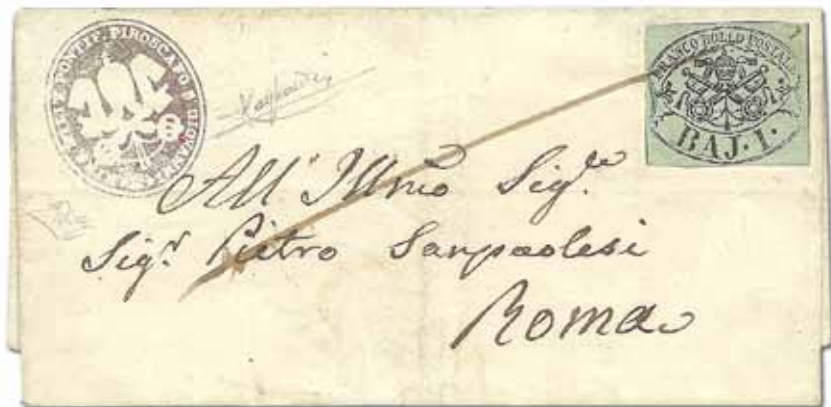 PONTIF. PIROSCAFO S. GIOVANNI
FRANCO BOLLO POSTALE
BAJ. 1.
All' Illmo Sigre
Sigr Pietro Sanpaolesi
Roma